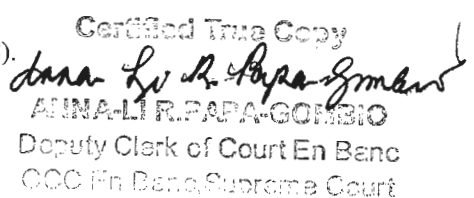 Certified True Copy
).
Anna-Li R. Papa-Gombio
ANNA-LI R.PAPA-GOMBIO
Deputy Clerk of Court En Banc
OCC En Banc, Supreme Court